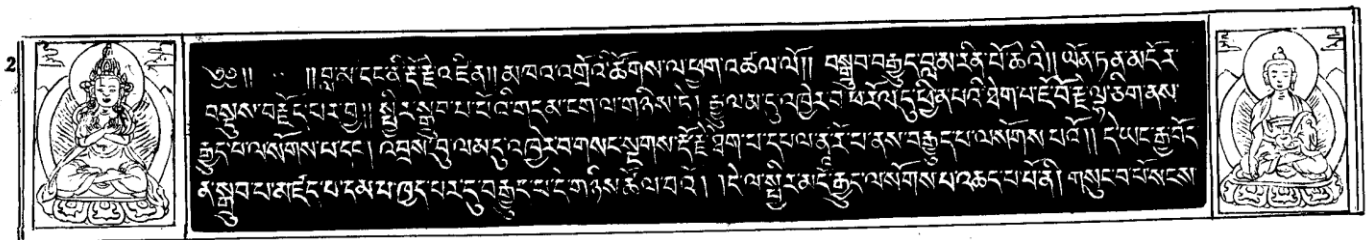 2
༄༅།། །།བླ་མ་དང་ནི་རྡོ་རྗེ་འཛིན།། མཁའ་འགྲོའི་ཚོགས་ལ་ཕྱག་འཚལ་ལོ།། བསྒྲུབ་བརྒྱུད་བླ་མ་རིན་པོ་ཆེའི།། ཡོན་ཏན་མདོར་
བསྡུས་བརྗོད་པར་བྱ།། སྤྱིར་སྒྲུབ་པ་པོའི་གདམ་ངག་ལ་གཉིས་ཏེ། རྒྱུ་ལམ་དུ་འཁྱེར་བ་ཕ་རོལ་དུ་ཕྱིན་པའི་ཐེག་པ་ཇོ་བོ་རྗེ་ལྷ་ཅིག་ནས་
རྒྱུད་པ་ལསོགས་པ་དང་། འབྲས་བུ་ལམ་དུ་འཁྱེར་བ་གསང་སྔགས་རྡོ་རྗེ་ཐེག་པ་དཔལ་ནཱ་རོ་པ་ནས་བརྒྱུད་པ་ལསོགས་པའོ།། དེ་ཡང་རྒྱ་བོད་
ན་སྒྲུབ་པ་མཛད་པ་དམ་པ་ཁྱད་པར་དུ་བརྒྱུད་པ་དེ་གཉིས་ཚོལ་བའོ། །དེ་ལ་སྤྱིར་མདོ་རྒྱུད་ལསོགས་པ་འཆད་པ་པོ་ནི། གསུང་བ་པོ་སངས